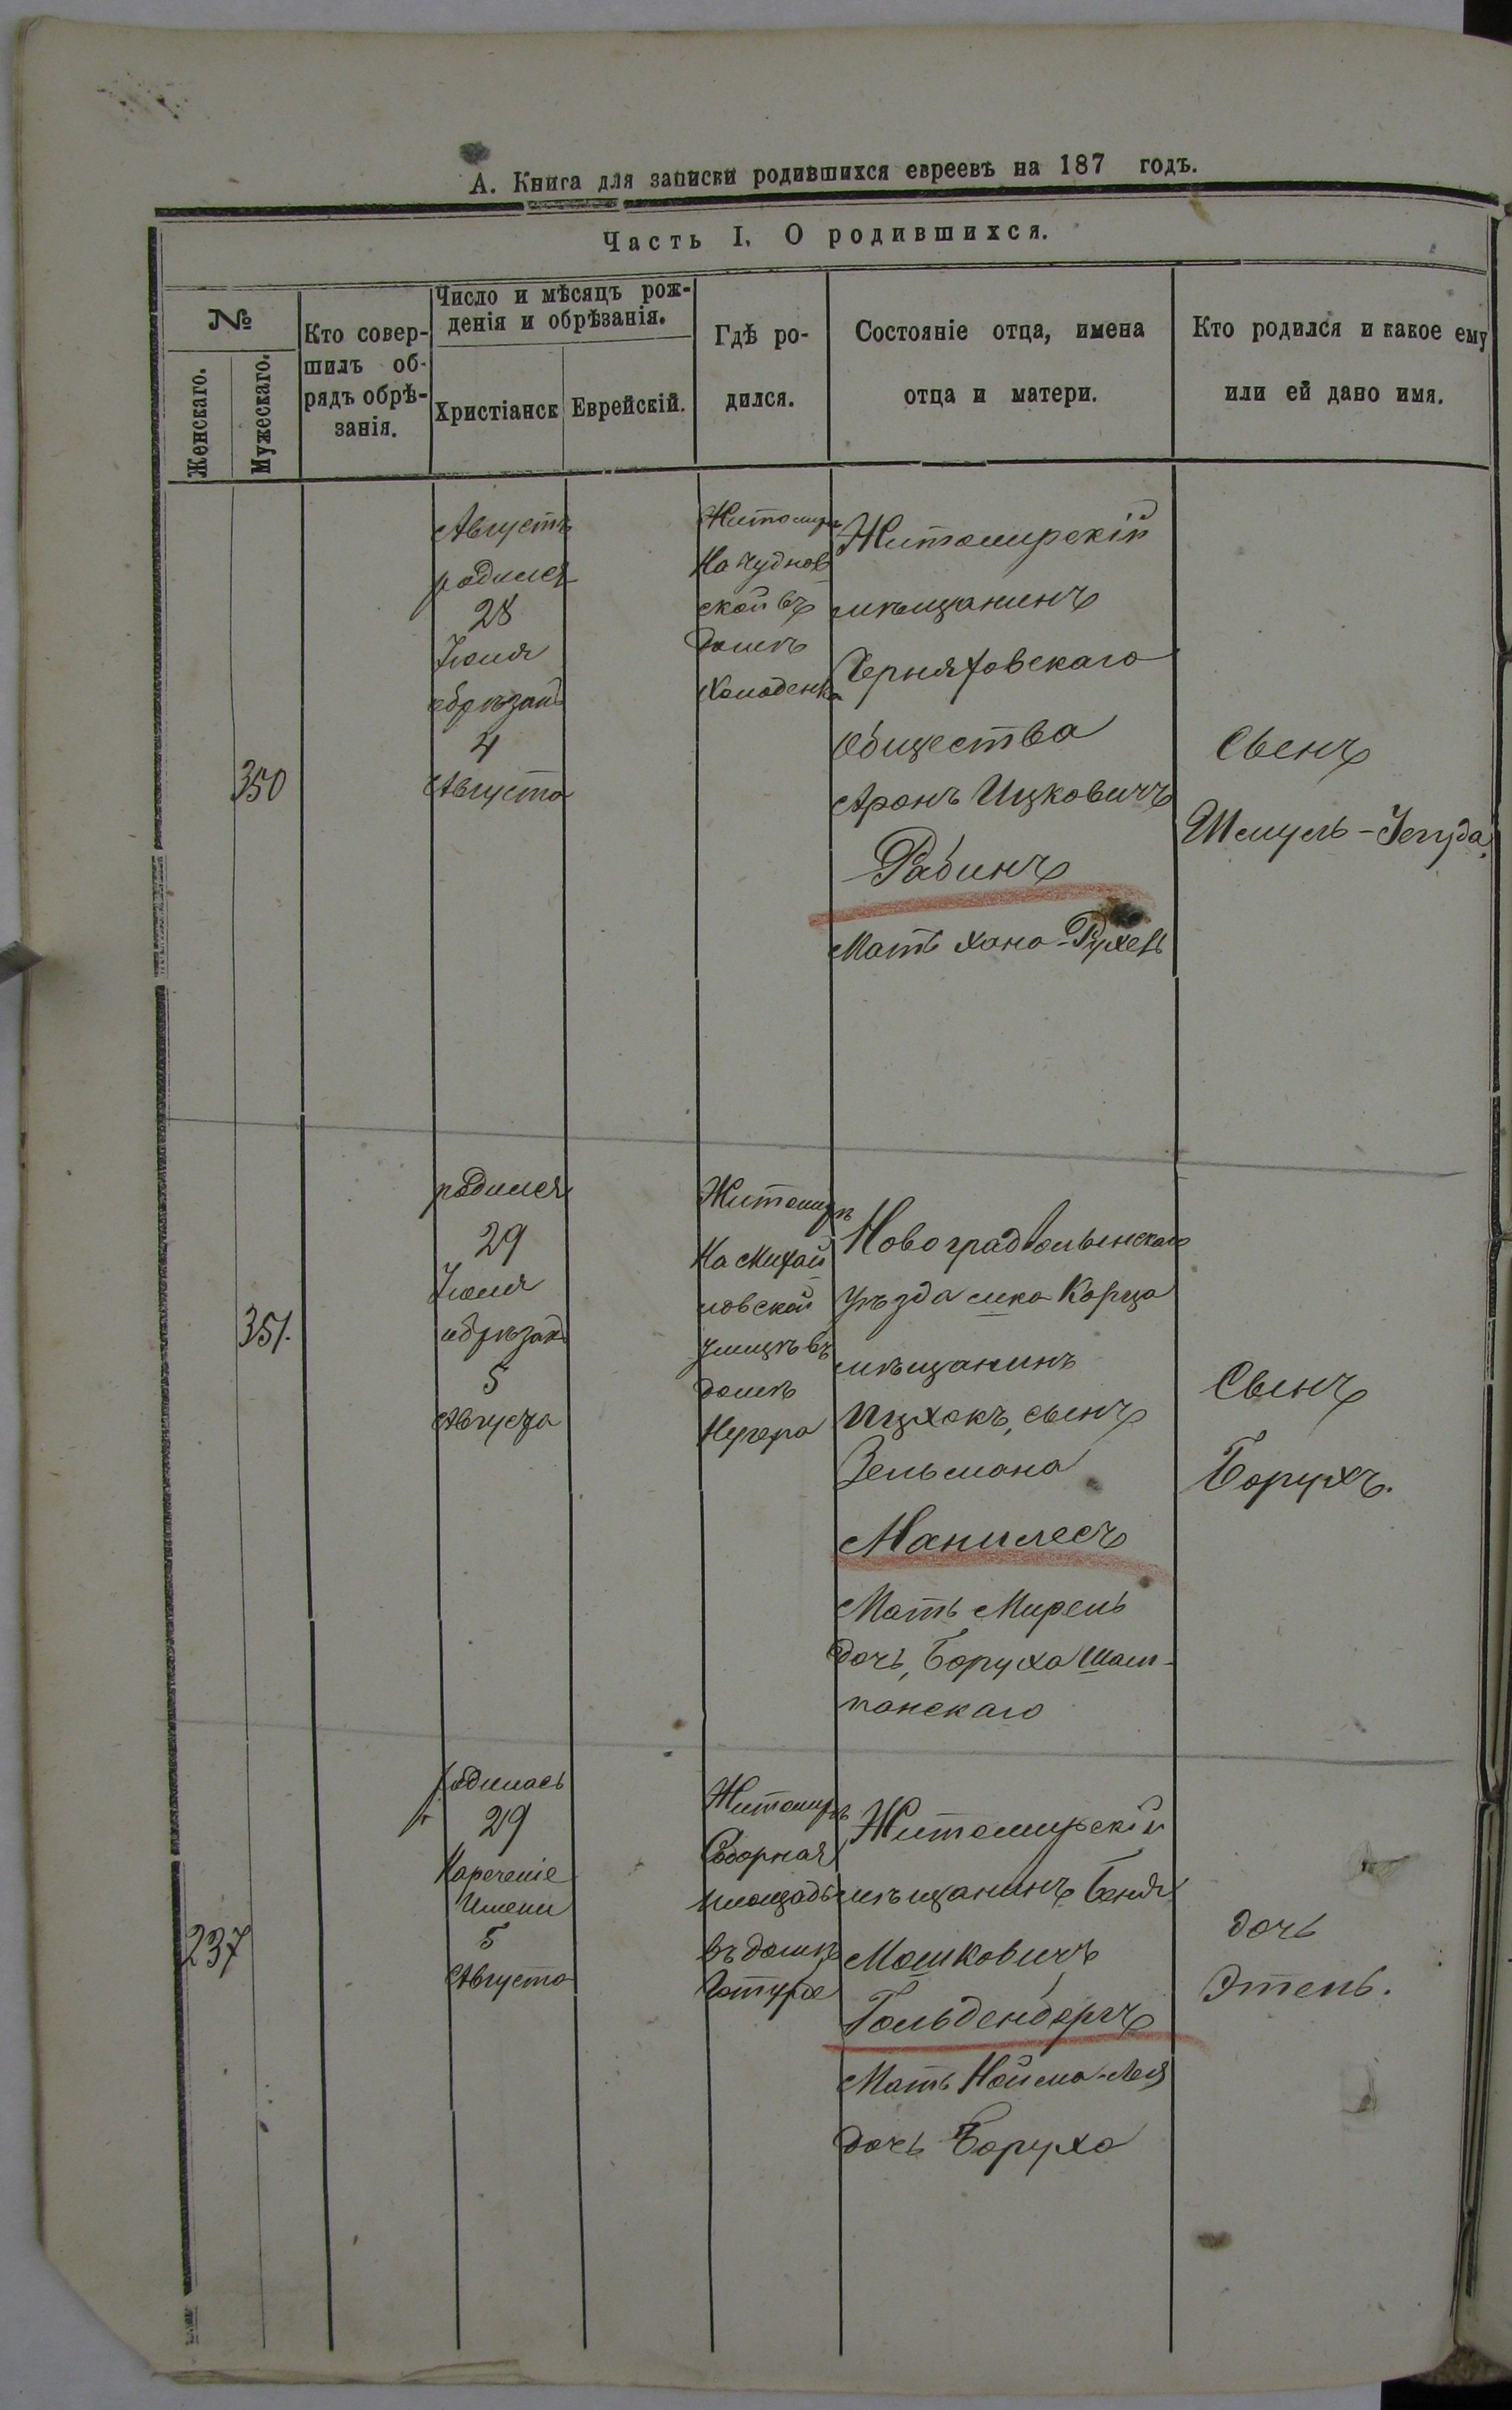 А. Книга для записки родившихся евреевъ на 187 годъ.
Часть I. О родившихся.
№
Женскаго.
Мужескаго.
Кто совер-
шилъ об-
рядъ обрѣ-
занія.
Число и мѣсяцъ рож-
денія и обрѣзанія.
Христіанск
Еврейскій.
Гдѣ ро-
дился.
Состояніе отца, имена
отца и матери.
Кто родился и какое ему
или ей дано имя.
350
Августъ
родился
28
Іюля
обрѣзанъ
4
Августа
Житомиръ
На Чуднов
ской въ
домѣ
Холоденка
Житомирскій
мѣщанинъ
Черняховскаго
общества
Аронъ Ицковичъ
Рабинъ
Мать Хана-Рухель
Сынъ
Шмуль-Іегуда.
351.
родился
29
Іюля
обрѣзанъ
5
Августа
Житомиръ
На Михай
ловской
улицѣ въ
домѣ
Новоградволынскаго
уѣзда мка Корца
мѣщанинъ
Ицхокъ, сынъ
Зельмана
Манилесъ
Мать Мирель
дочь, Боруха Шам-
панскаго
Сынъ
Борухъ.
237
родилась
29
Нареченіе
Имени
5
Августа
Житомиръ
Соборная
площадь
въ домѣ
Житомирскій
мѣщанинъ Беня
Мошковичъ
Гольденбергъ
Мать Нойма-Лея
дочь Боруха
дочь
Этель.